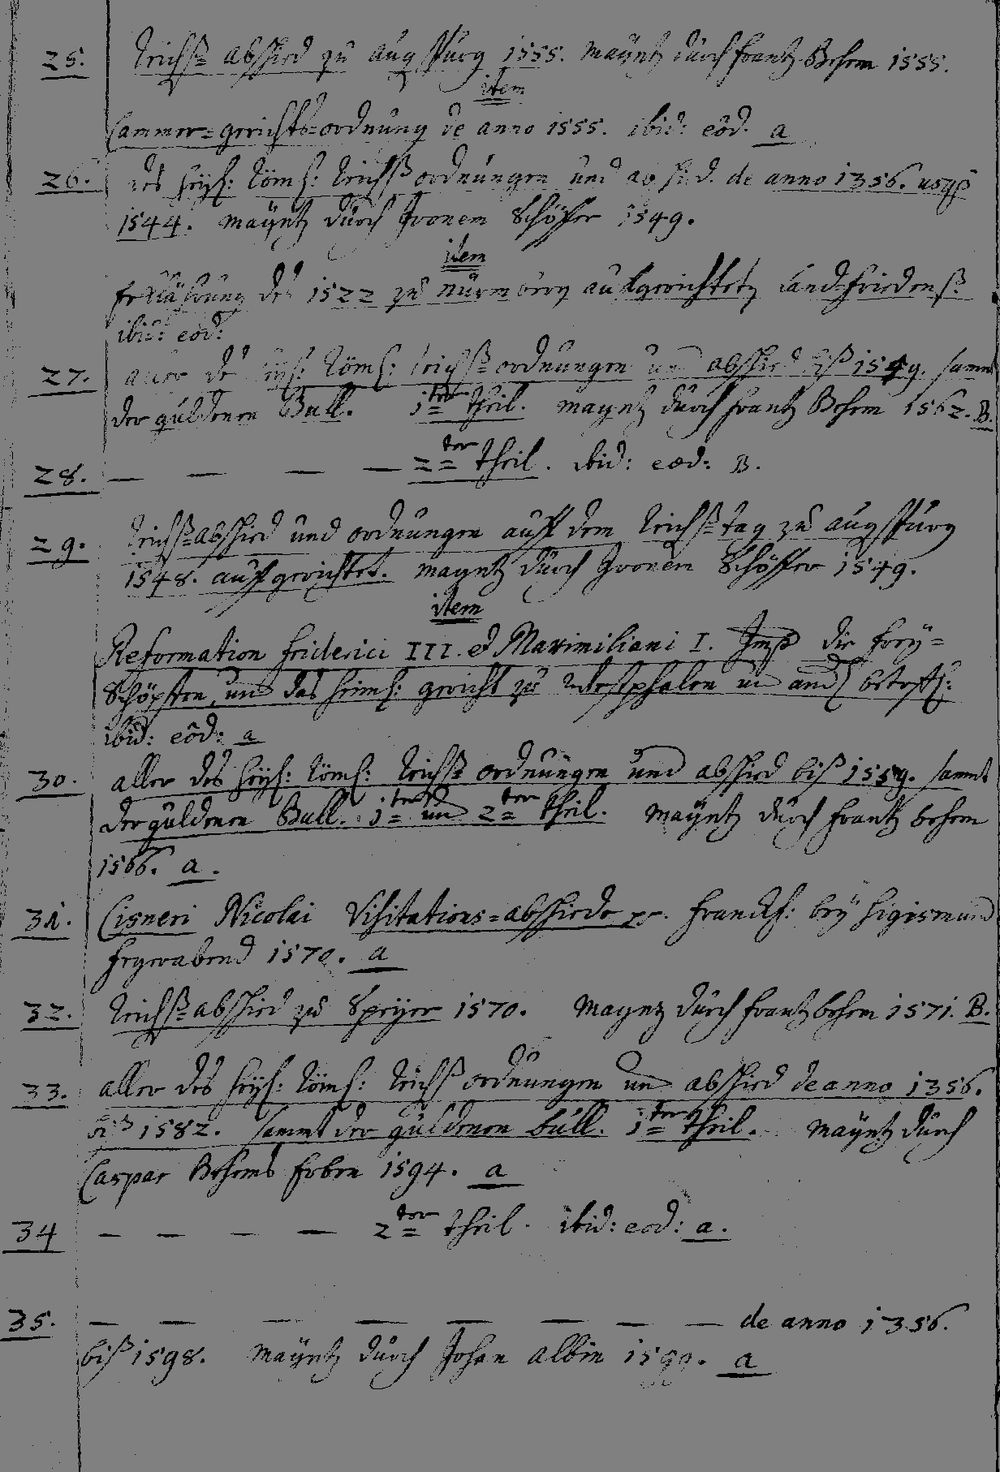 25. Reichß=abschied zu augspurg 1555. Mayntz durch frantz Behem 1555.
item
Cammer=gerichts=ordnung de anno 1555. ibid: eôd. a
26. des heyl: Röm: Reichß ordnungen und abschied. de anno 1356. usqz
1544. Mayntz durch Ivonem Schöffer 1549.
item
Erklährung des 1522 zu Nurmberg aufgerichteten Landfriedenß.
ibid: eod:
27. aller des heyl: Röm: Reichß=ordnungen und abschied biß 1559. sammt
der guldenen Bull. 1ter theil. Mayntz durch frantz Behem 1562. B.
28. — — — — 2ter theil. ibid: eod: B.
29. Reichß=abschied und ordnungen auff dem Reichß=tag zu augspurg
1548. auffgerichtet. Mayntz durch Ivonem Schöffer 1549.
item
Reformation Friderici III. et Maximiliani I. Imp die frey=
Schöpffen, und das heiml: gericht zu Westphalen und and betreff:
ibid: eôd: a
30. aller des heyl: Röm: Reichß=ordnungen und abschied biß 1559. sammt
der guldenen Bull. 1ter und 2ter theil. Mayntz durch frantz behem
1566. a.
31. Cisneri Nicolai Visitations=abschiede pp. franckf: bey Sigismund
feyerabend 1570. a
32. Reichß=abschied zu Speyer 1570. Mayntz durch frantz behem 1571. B.
33. aller des heyl: Röm: Reichß ordnungen und abschied de anno 1356.
biß 1582. sammt der guldenen bull. 1ter theil. Mayntz durch
Caspar Behems Erben 1594. a
34 — — — — 2ter theil. ibid: eod: a.
35. — — — — — — — — de anno 1356.
biß 1598. Mayntz durch Johan Albin 1599. a